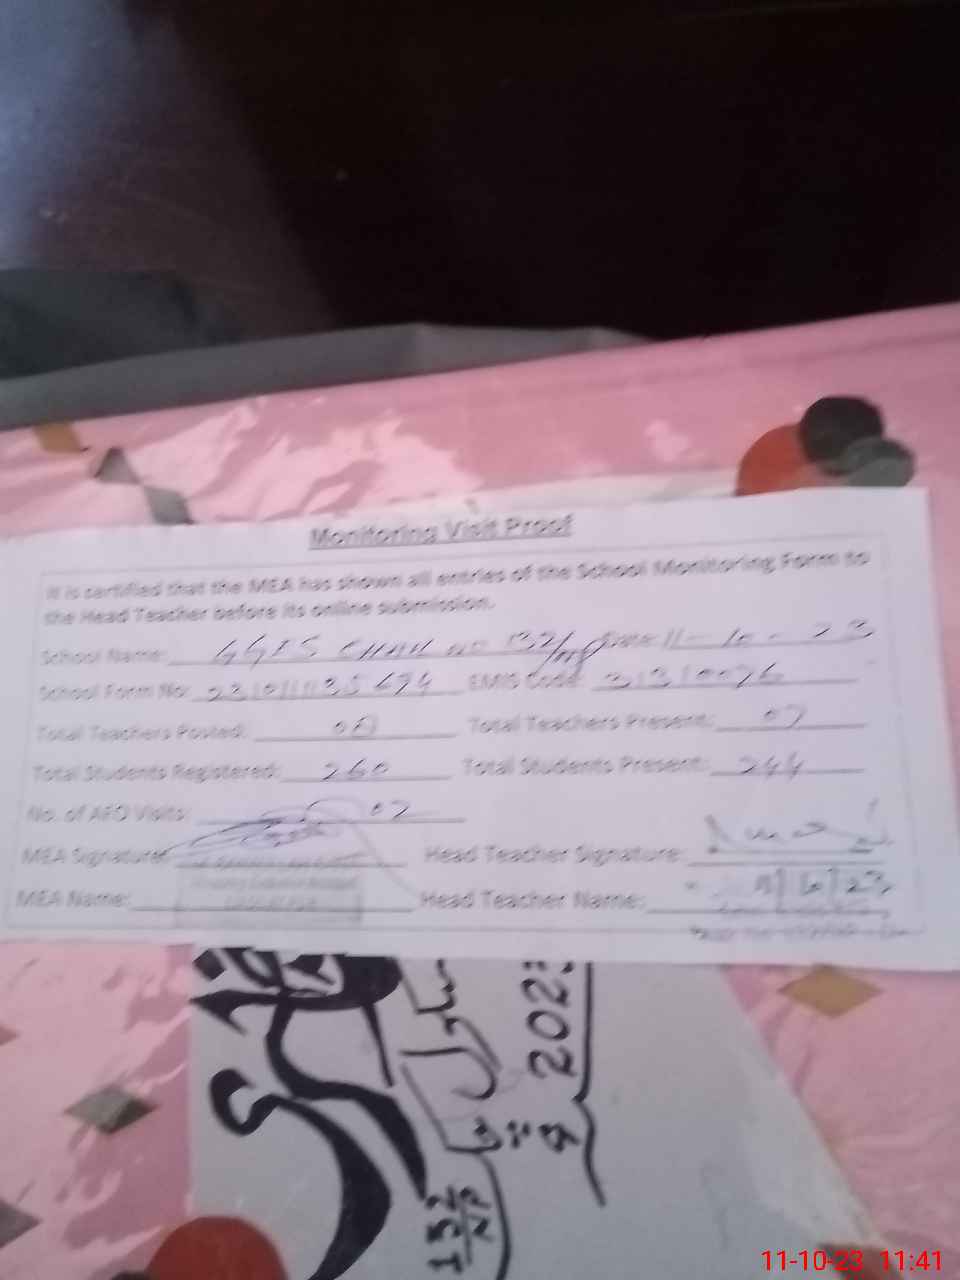 Monitoring Visit Proof
It is certified that the MEA has shown all entries of the School Monitoring Form to
the Head Teacher before its online submission.
School Name: GGES CHAK NO 132/NP Date: 11-10-23
School Form No: EMIS Code: 31310076
Total Teachers Posted: 08 Total Teachers Present: 07
Total Students Registered: 260 Total Students Present: 244
No. of AEO Visits: 02
MEA Signature: Head Teacher Signature:
MEA Name: Head Teacher Name:
سال
2023
132/NP
11-10-23 11:41